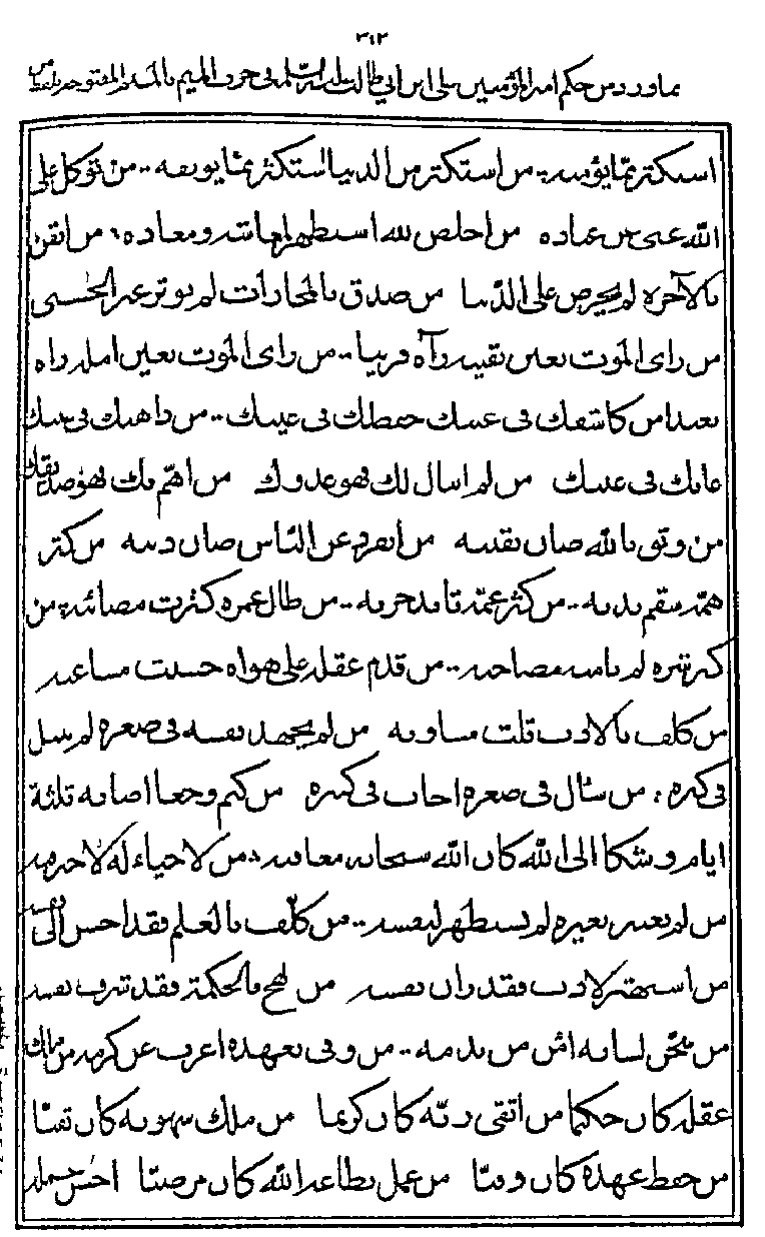 ٣١٢
مما ورد من حكم امير المؤمنين علي ابن ابي طالب عليه السلام في حرف الميم بالميم المفتوحة بلفظ من
استكثر مما يؤمنه من استكثر من الدنيا استكثر مما يوبقه من توكل على
الله غني عن عباده من اخلص لله استظهر لمعاشه ومعاده من ايقن
بالآخره لم يحرص على الدنيا من صدق بالمجازات لم يوثر غير الحسنى
من راى الموت بعين يقينه رآه قريبا من راى الموت بعين امله راه
بعيدا من كاشفك في عيبك حفظك في غيبك من داهنك في عيبك
عابك في غيبك من لم يبال لك فهو عدوك من اهتم بك فهو صديقك
من وثق بالله صان يقينه من انفرد عن الناس صان دينه من كثر
همه سقم بدنه من كثر غمه تابد حزنه من طال عمره كثرت مصائبه من
كثر شره لم يامنه مصاحبه من قدم عقله على هواه حسنت مساعيه
من كلف بالادب قلت مساويه من لم يجهد نفسه في صغره لم ينبل
في كبره من سئال في صغره اجاب في كبره من كتم وجعا اصابه ثلثة
ايام وشكا الى الله كان الله سبحانه معافيه من لا حياء له لا خير فيه
من لم يعتبر بغيره لم يستظهر لنفسه من كلف بالعلم فقد احسن الى نفسه
من استهتر بالادب فقد زان نفسه من لهج بالحكمة فقد شرف نفسه
من سجن لسانه امن من ندمه من وفى بعهده اعرب عن كرمه من ملك
عقله كان حكيما من اتقى ربه كان كريما من ملك شهوته كان تقيا
من حفظ عهده كان وفيا من عمل بطاعة الله كان مرضيا احسن